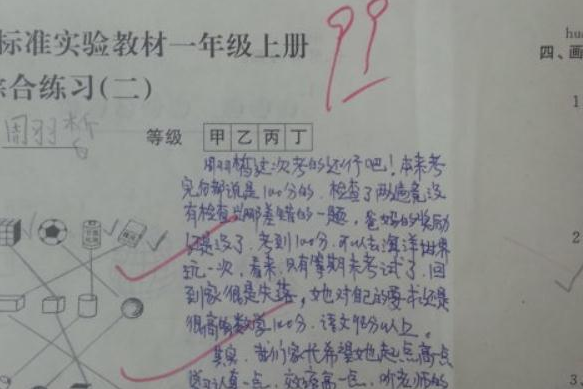 标准实验教材一年级上册
综合练习(二)
99
hu
四、画
周羽
等级 甲 乙 丙 丁
周羽 这次考的还行吧！本来考
完分都说是100分的，检查了两遍竟没
有检查出那差错的一题，爸妈的奖励
还是没了，考到100分，可以去海洋世界
玩一次，看来，只有等期末考试了，回
到家很是失落，她对自己的要求还是
很高的数学100分，语文 分以上。
其实，我们家长希望她起点高点
学习认真一点，效率高一点，听老师的
1
2
3